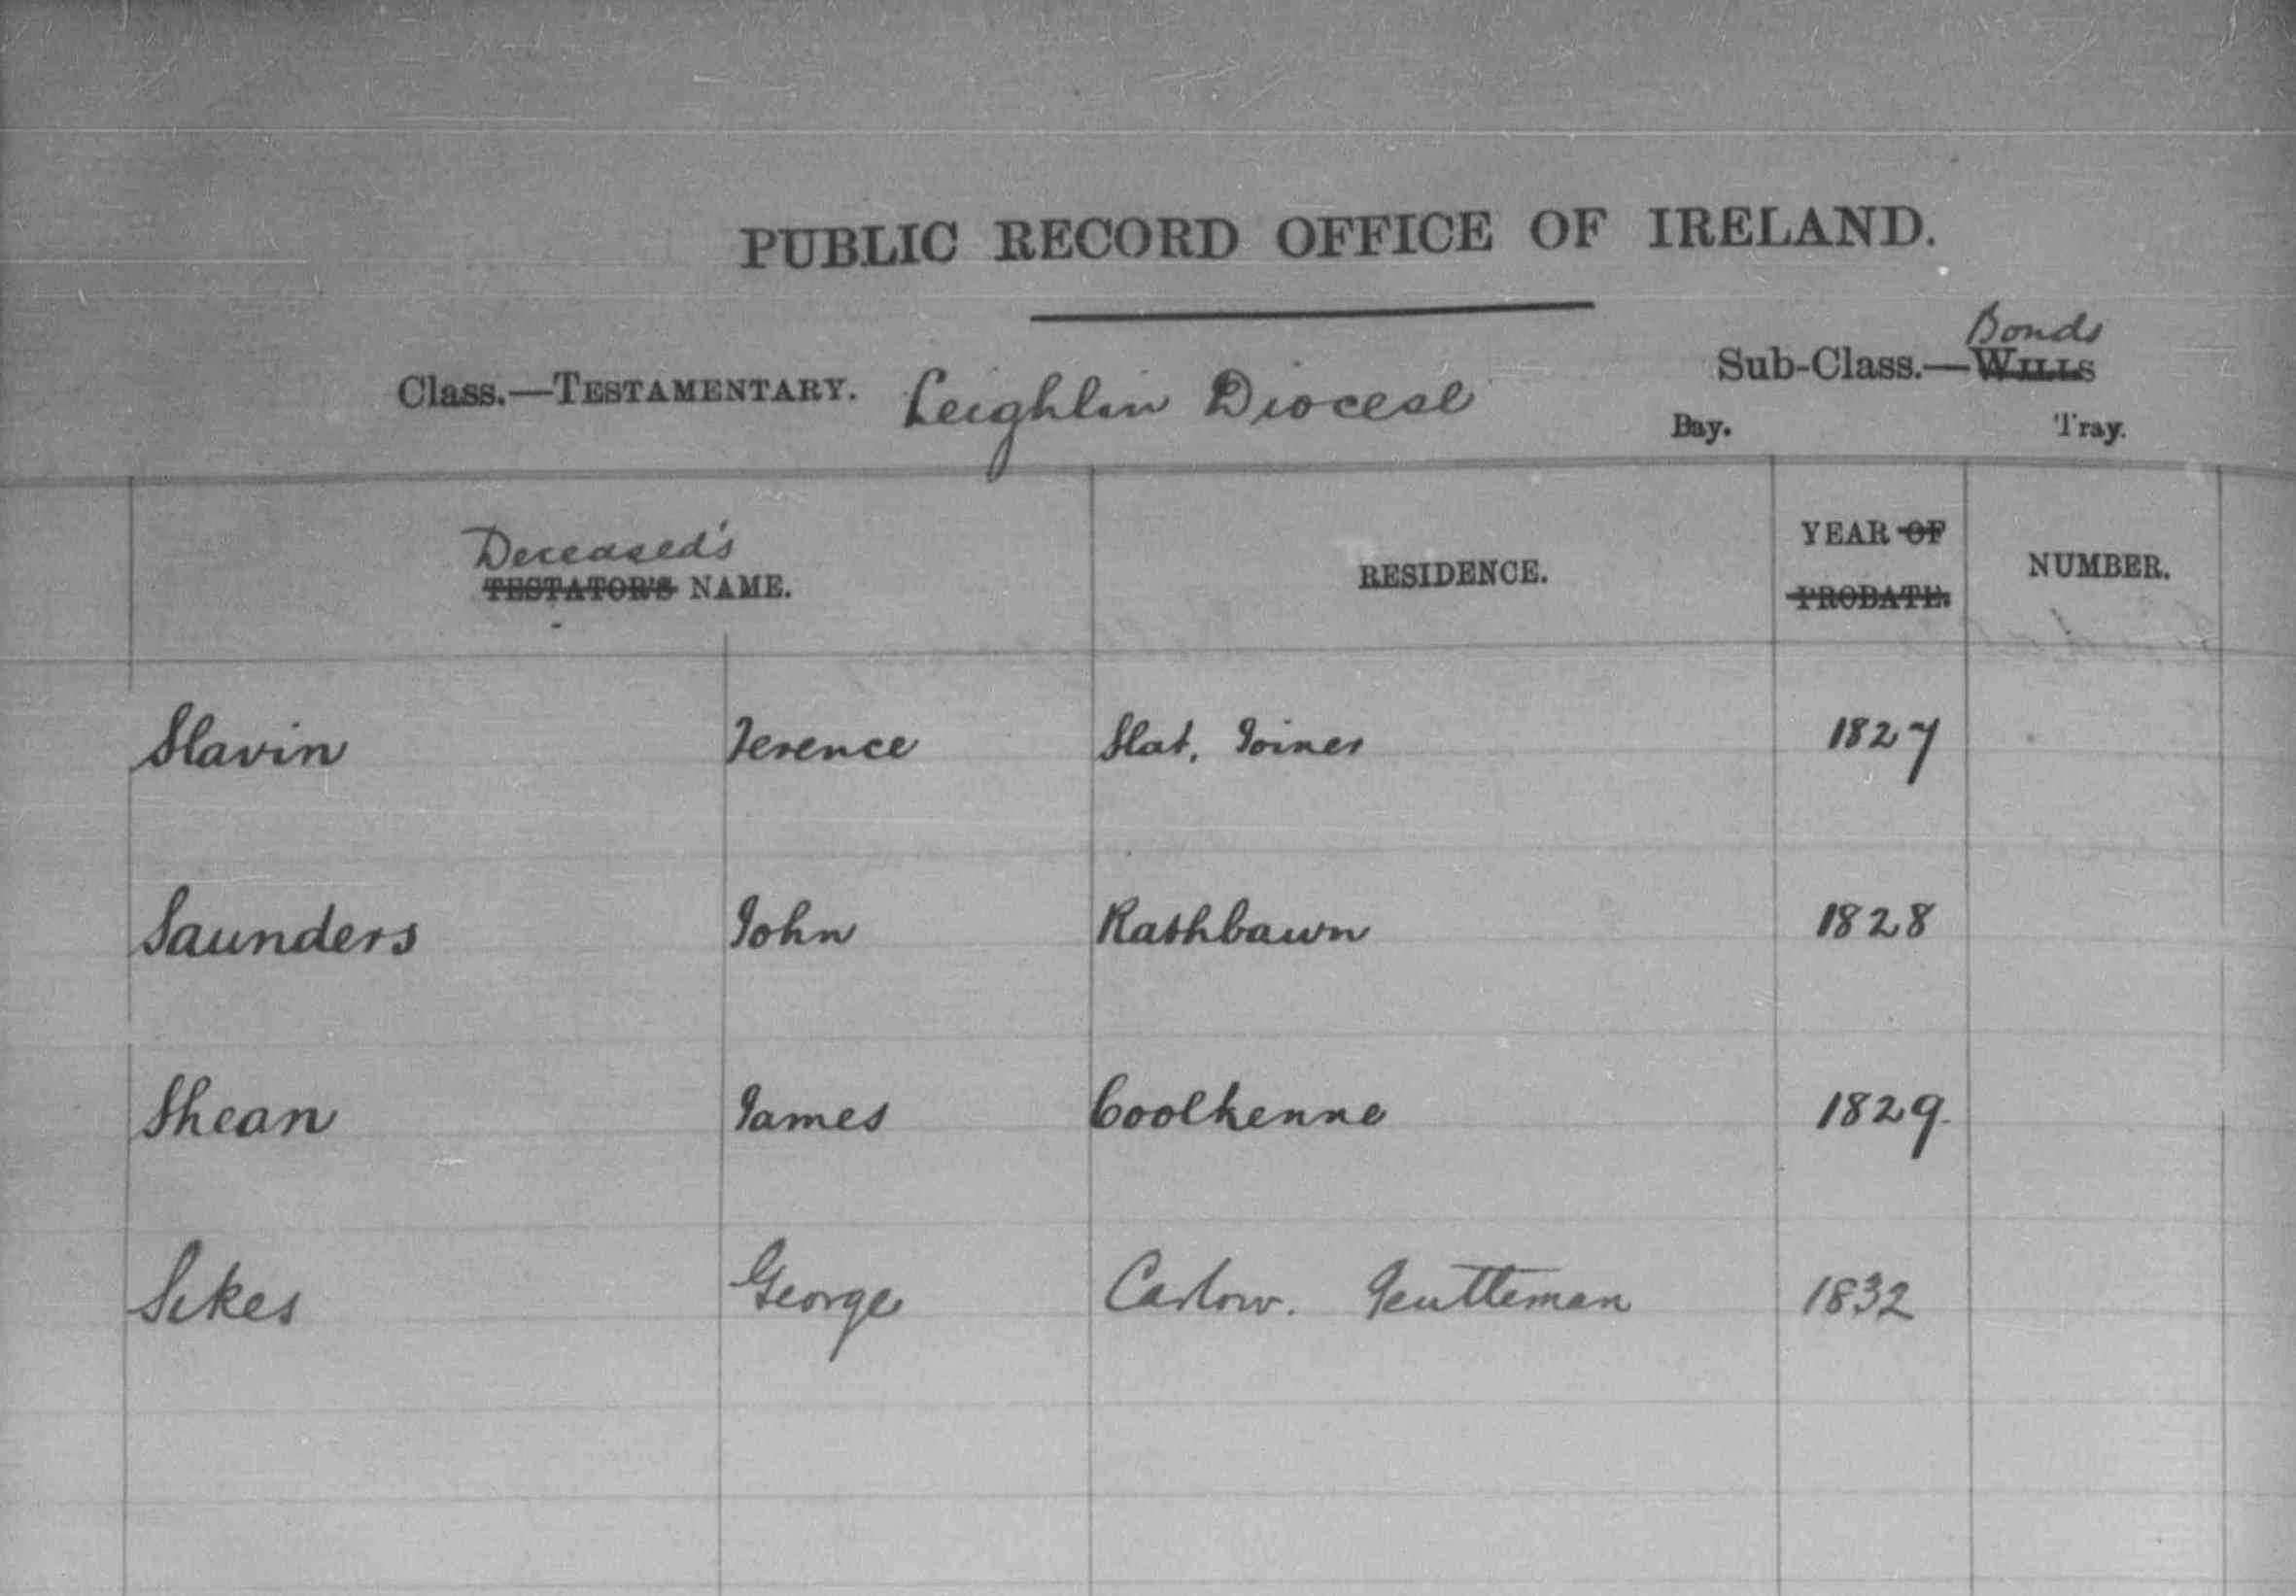 PUBLIC RECORD OFFICE OF IRELAND.
Bonds
Class.—TESTAMENTARY. Leighlin Diocese Sub-Class.—WILLS
Bay. Tray.
Deceased's
TESTATOR'S NAME. RESIDENCE. YEAR OF PROBATE. NUMBER.
Slavin Terence Slat. Joiner 1827
Saunders John Rathbawn 1828
Shean James Coolkenne 1829
Sikes George Carlow. Gentleman 1832